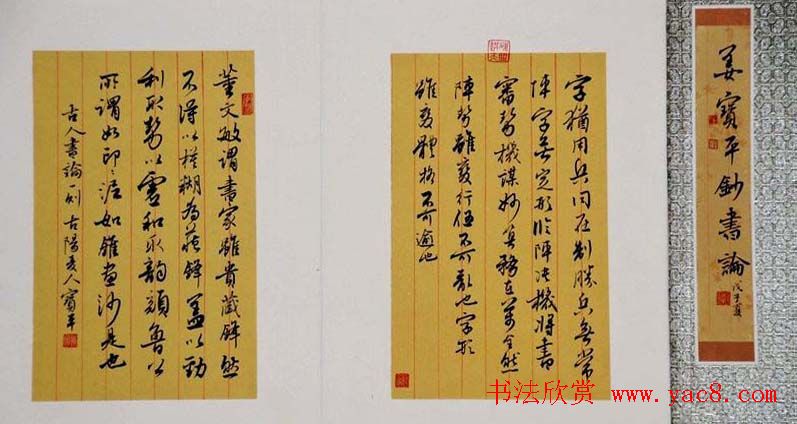 姜寶平鈔書論
戊子夏
字猶用兵同在制勝兵無常
陣字無定形臨陣决機將書
審勢機謀妙算務在萬全然
陣勢雖變行伍不可亂也字形
雖變體格不可逾也
董文敏謂書家雖貴藏鋒然
不得以模糊為藏鋒蓋以勁
利取勢以虛和取韻顏魯公
所謂如印〻泥如錐畫沙是也
古人書論一則古陽人寶平
书法欣赏 www.yac8.com